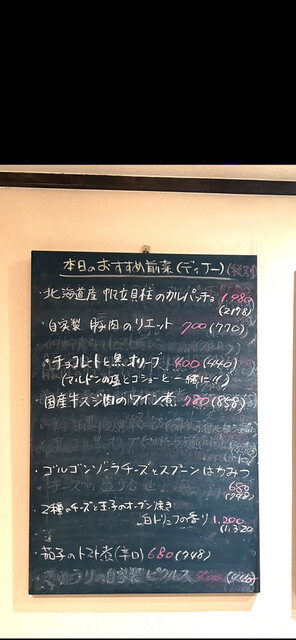 本日のおすすめ前菜(ディナー)(税込)
・北海道産 帆立貝柱のカルパッチョ 1,980
(2178)
・自家製 豚肉のリエット 700(770)
・チョコレートと黒オリーブ 400(440)
(マルドンの塩とコショーと一緒に!!)
国産牛スジ肉のワイン煮 780(858)
・ゴルゴンゾーラチーズとスプーンはちみつ
680
(748)
2種のチーズと玉子のオーブン焼き
白トリュフの香り 1,200
(1,320
・茄子のトマト煮(辛口) 680(748)
自家製ピクルス